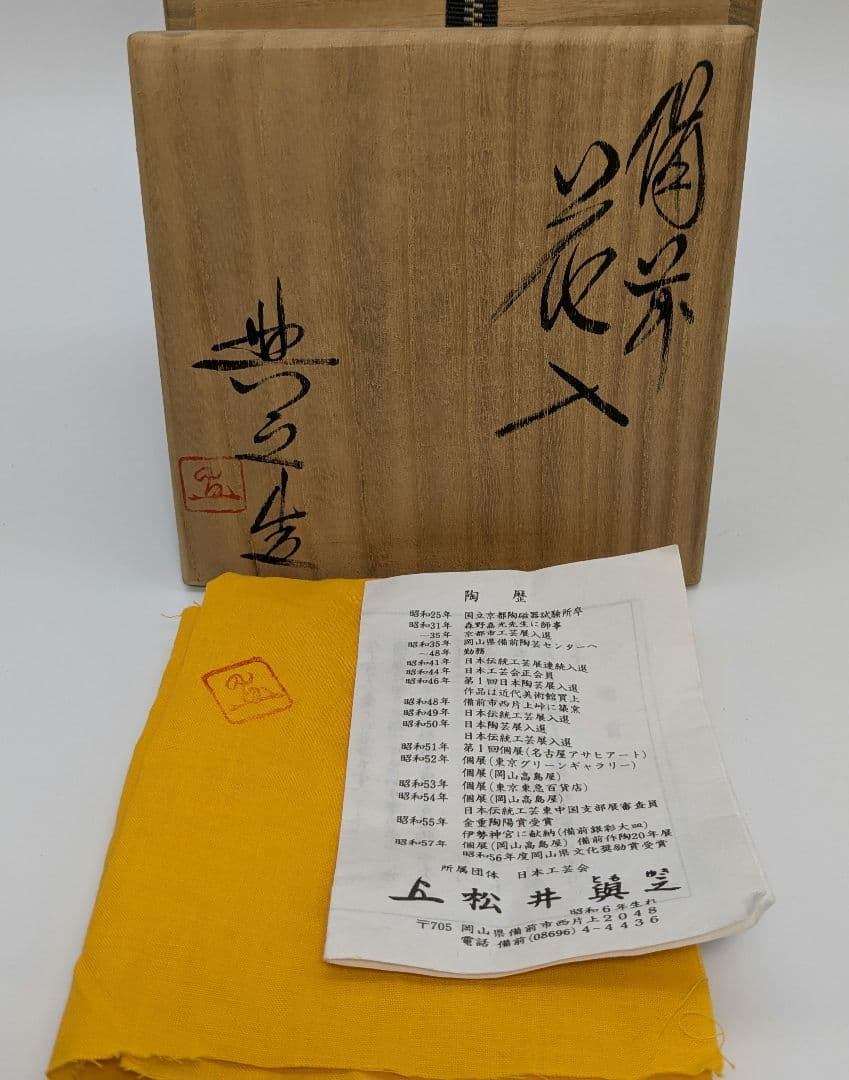 備前
花入
與之造
陶歴
昭和25年 国立京都陶磁器試験所卒
昭和31年 森野嘉光先生に師事
〜35年 京都市工芸展入選
昭和35年 岡山県備前陶芸センターへ
〜48年 勤務
昭和41年 日本伝統工芸展連続入選
昭和44年 日本工芸会正会員
昭和46年 第1回日本陶芸展入選
作品は近代美術館買上
昭和48年 備前市西片上峠に築窯
昭和49年 日本伝統工芸展入選
昭和50年 日本陶芸展入選
日本伝統工芸展入選
昭和51年 第1回個展(名古屋アサヒアート)
昭和52年 個展(東京グリーンギャラリー)
個展(岡山高島屋)
昭和53年 個展(東京東急百貨店)
昭和54年 個展(岡山高島屋)
日本伝統工芸東中国支部展審査員
昭和55年 金重陶陽賞受賞
伊勢神宮に献納(備前銀彩大皿)
昭和57年 個展(岡山高島屋) 備前作陶20年展
昭和56年度岡山県文化奨励賞受賞
所属団体 日本工芸会
松井與之
とも ゆき
昭和6年生れ
〒705 岡山県備前市西片上2048
電話 備前(08696)4-4436